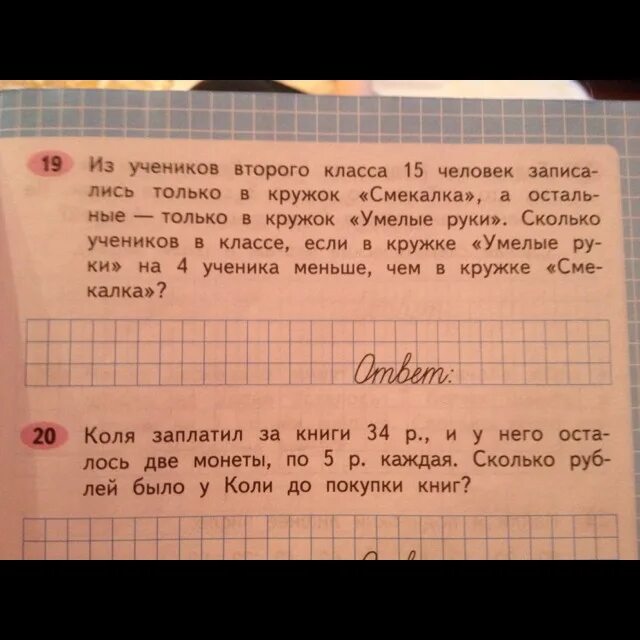 19 Из учеников второго класса 15 человек записа-
лись только в кружок «Смекалка», а осталь-
ные — только в кружок «Умелые руки». Сколько
учеников в классе, если в кружке «Умелые ру-
ки» на 4 ученика меньше, чем в кружке «Сме-
калка»?
Ответ:
20 Коля заплатил за книги 34 р., и у него оста-
лось две монеты, по 5 р. каждая. Сколько руб-
лей было у Коли до покупки книг?